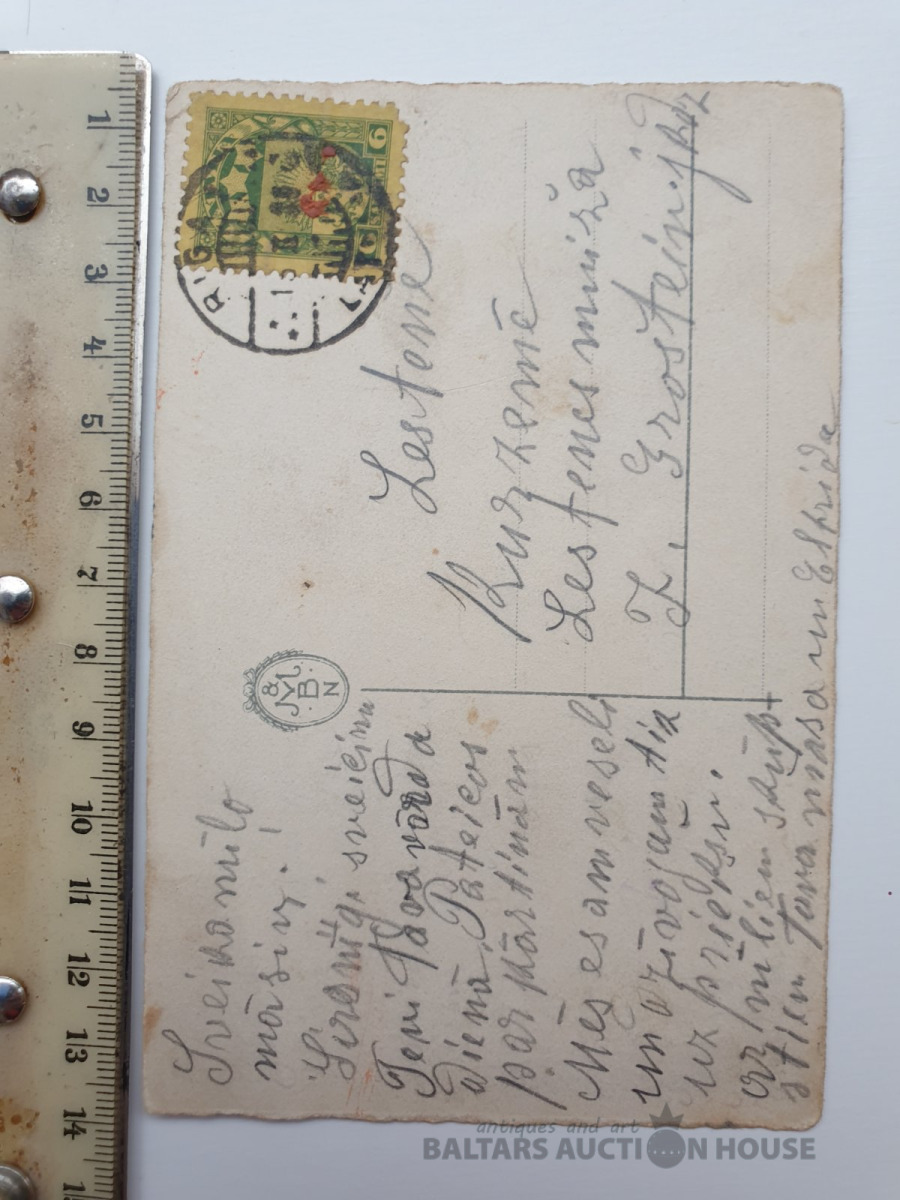 Sveika mīļo
māsiņ!
Sirsnīgi sveicinu
Tevi Tava vārda
Dienā. Pateicos
par kārtiņām
Mēs esam veseli
un dzīvojam tik
uz priekšu.
ar mīliem skūp-
stiem Tava māsa un Elfrīda
Lestene
Kurzemē
Lestenes muiža
Z. Grosteinj kdz
&
M
B N
RIGA
6
6
1 2 3 4 5 6 7 8 9 10 11 12 13 14 15
antiques and art
BALTARS AUCTION HOUSE